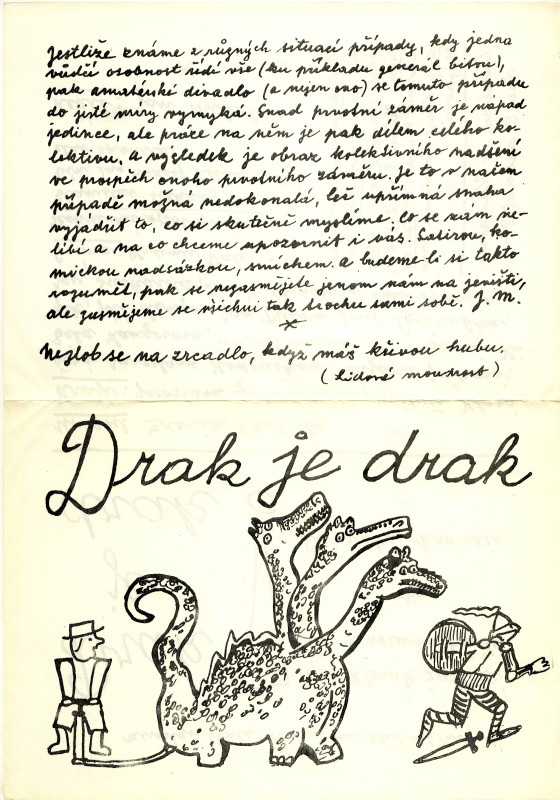 Jestliže známe z různých situací případy, kdy jedna
vůdčí osobnost řídí vše (ku příkladu generál bitvu),
pak amatérské divadlo (a nejen ono) se tomuto případu
do jisté míry vymyká. Snad prvotní záměr je nápad
jedince, ale práce na něm je pak dílem celého ko-
lektivu. A výsledek je obraz kolektivního nadšení
ve prospěch onoho prvotního záměru. Je to v našem
případě možná nedokonalá, leč upřímná snaha
vyjádřit to, co si skutečně myslíme, co se nám ne-
líbí a na co chceme upozornit i vás. Satirou, ko-
mickou nadsázkou, smíchem. A budeme-li si takto
rozumět, pak se nezasmějete jenom nám na jevišti,
ale zasmějeme se všichni tak trochu sami sobě. J. M.
Nezlob se na zrcadlo, když máš křivou hubu.
(Lidová moudrost)
Drak je drak